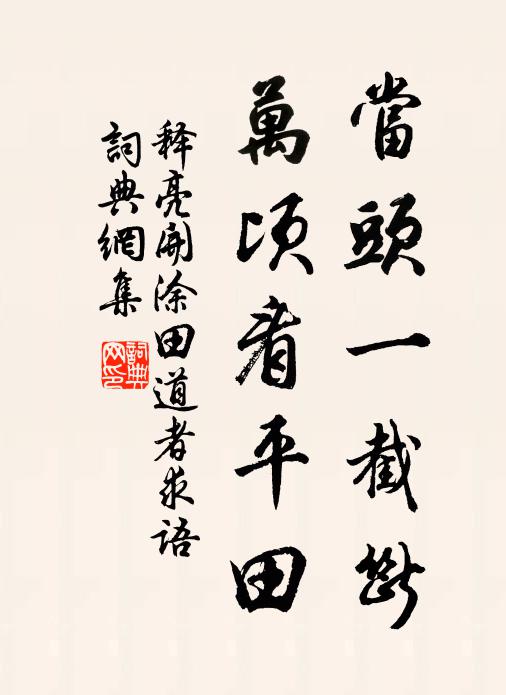 當頭一截斷
萬頃看平田
释亮開涂田道者求語
詞典網集
詞典网印